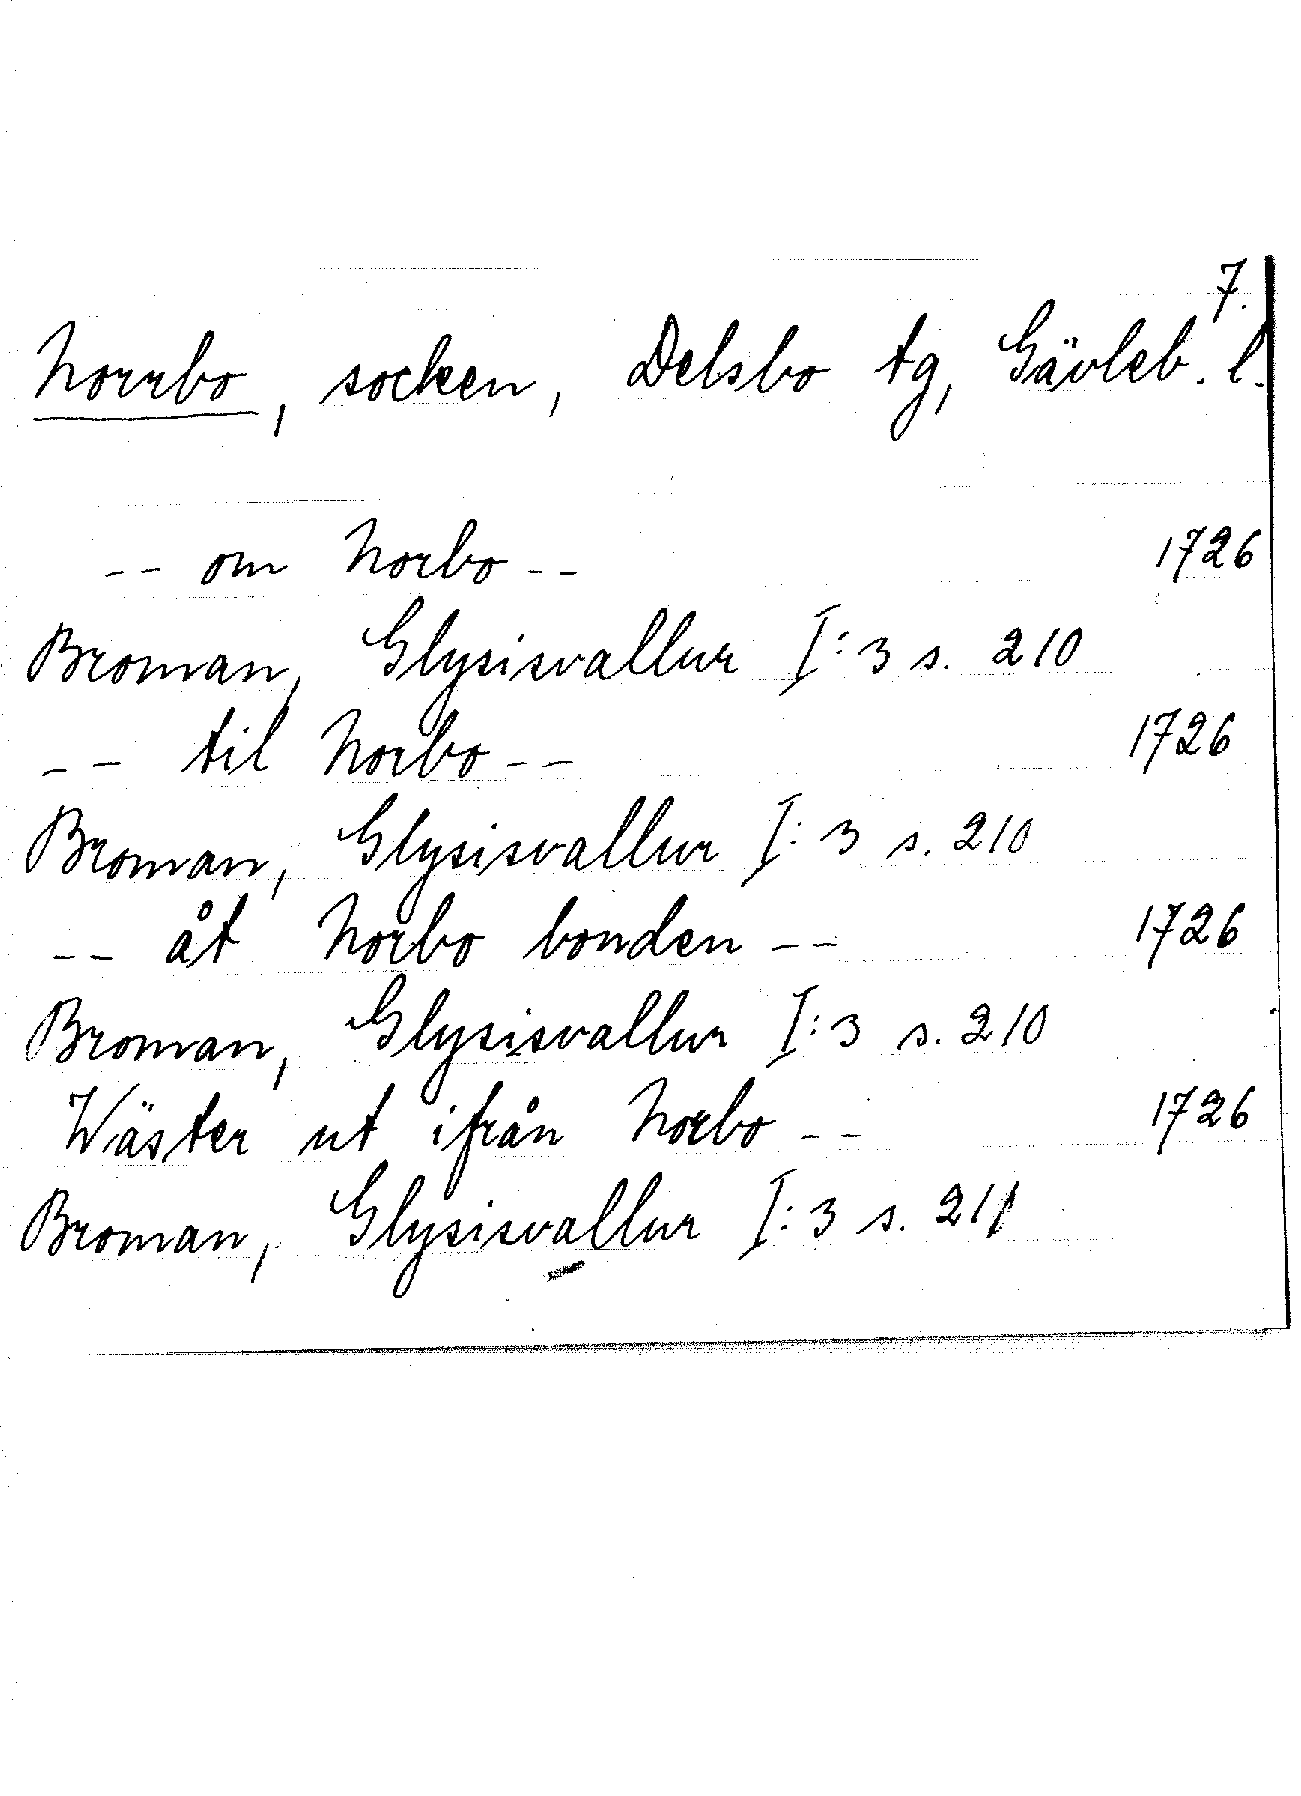 7.
Norrbo, socken, Delsbo tg, Gävleb. l.
-- om Norbo -- 1726
Broman, Glysisvallur I:3 s. 210
-- til Norbo -- 1726
Broman, Glysisvallur I:3 s. 210
-- åt Norbo bonden -- 1726
Broman, Glysisvallur I:3 s. 210
Wäster ut ifrån Norbo -- 1726
Broman, Glysisvallur I:3 s. 211